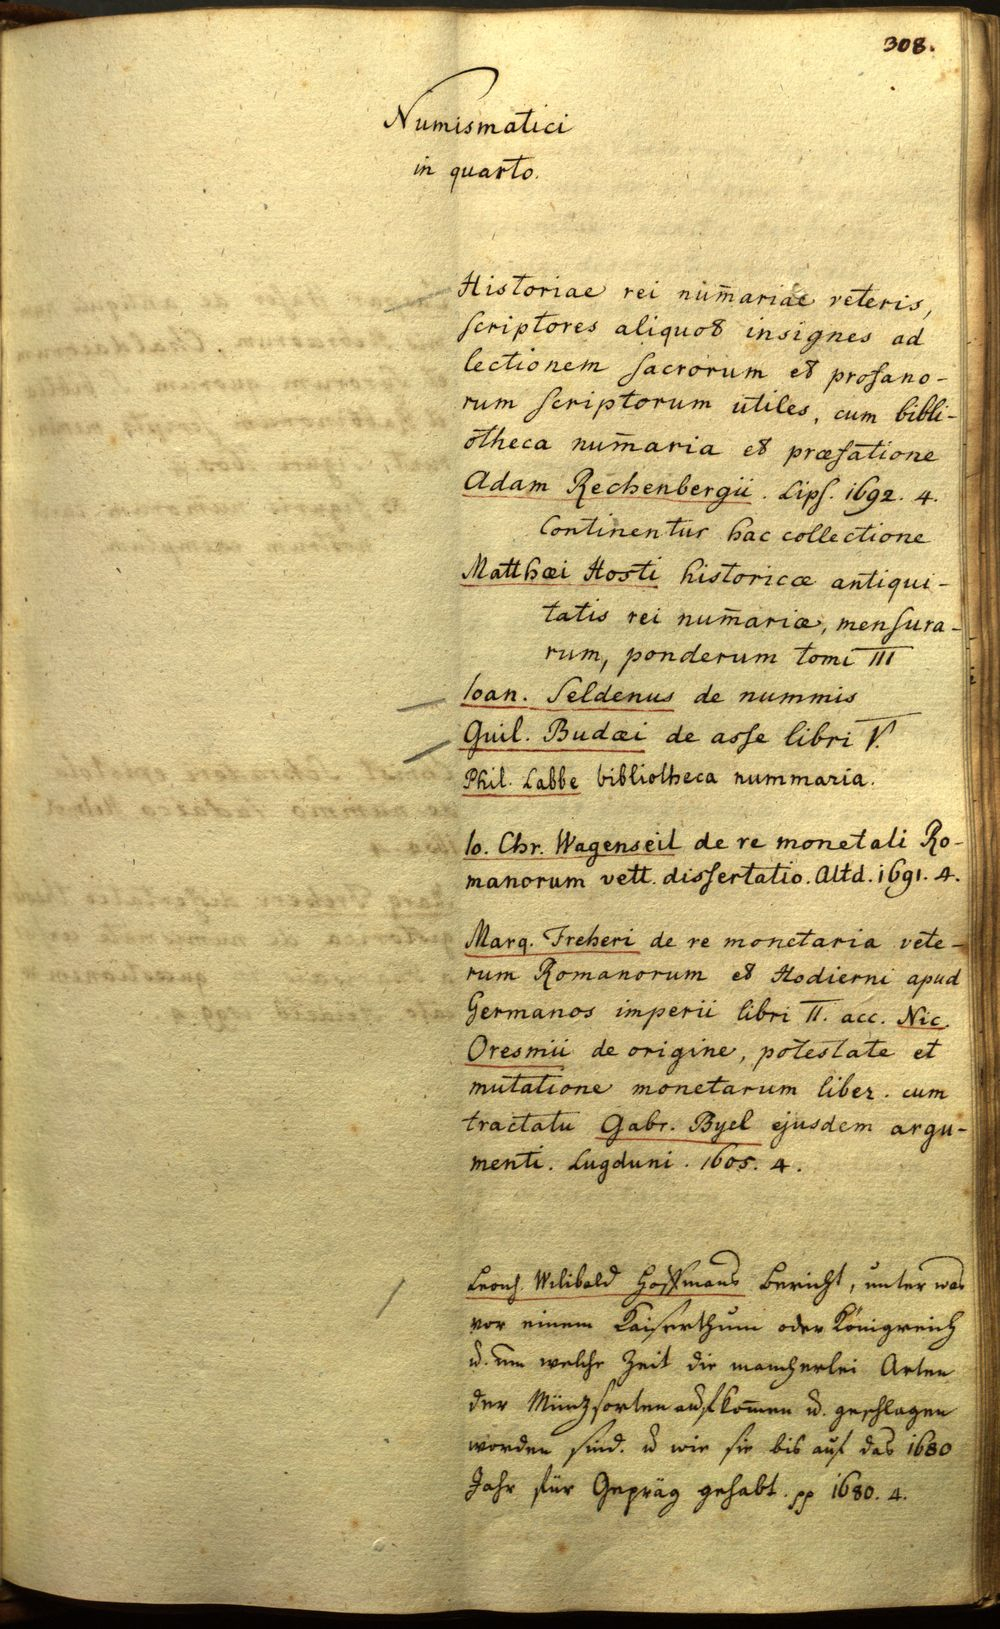 308.
Numismatici
in quarto.
Historiae rei num̅ariae veteris,
scriptores aliquot insignes ad
lectionem sacrorum et profano-
rum scriptorum utiles, cum bibli-
otheca num̅aria et præfatione
Adam Rechenbergii. Lips. 1692. 4.
Continentur hac collectione
Matthæi Hosti historicæ antiqui-
tatis rei num̅ariæ, mensura-
rum, ponderum tomi III
Ioan. Seldenus de nummis
Guil. Budæi de asse libri V.
Phil. Labbe bibliotheca nummaria.
Io. Chr. Wagenseil de re monetali Ro-
manorum vett. dissertatio. Altd. 1691. 4.
Marq. Freheri de re monetaria vete-
rum Romanorum et Hodierni apud
Germanos imperii libri II. acc. Nic.
Oresmii de origine, potestate et
mutatione monetarum liber. cum
tractatu Gabr. Byel ejusdem argu-
menti. Lugduni. 1605. 4.
Leonh. Wilibald Hoffmans Bericht, unter was
vor einem Kaiserthum oder Königreich
u. um welche Zeit die mancherlei Arten
der Münzsorten aufkom̅en u. geschlagen
worden sind. u wie sie bis auf das 1680
Jahr für Gepräg gehabt. pp 1680. 4.